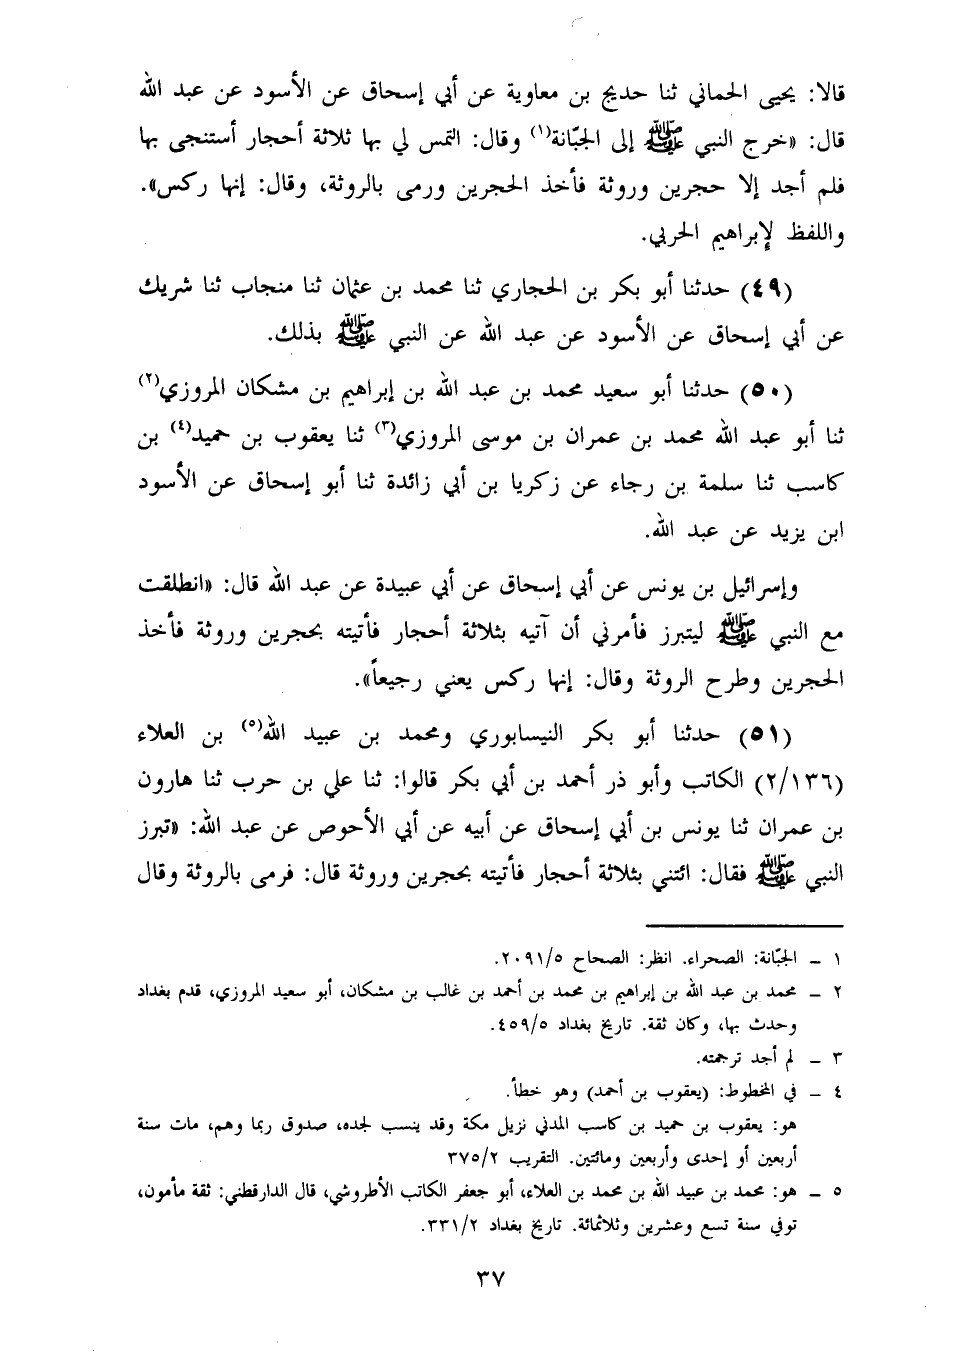 قالا: يحيى الحماني ثنا حديج بن معاوية عن أبي إسحاق عن الأسود عن عبد الله
قال: «خرج النبي ﷺ إلى الجبّانة(١) وقال: التمس لي بها ثلاثة أحجار أستنجى بها
فلم أجد إلا حجرين وروثة فأخذ الحجرين ورمى بالروثة، وقال: إنها ركس».
واللفظ لإبراهيم الحربي.
(٤٩) حدثنا أبو بكر بن الحجاري ثنا محمد بن عثمان ثنا منجاب ثنا شريك
عن أبي إسحاق عن الأسود عن عبد الله عن النبي ﷺ بذلك.
(٥٠) حدثنا أبو سعيد محمد بن عبد الله بن إبراهيم بن مشكان المروزي(٢)
ثنا أبو عبد الله محمد بن عمران بن موسى المروزي(٣) ثنا يعقوب بن حميد(٤) بن
كاسب ثنا سلمة بن رجاء عن زكريا بن أبي زائدة ثنا أبو إسحاق عن الأسود
ابن يزيد عن عبد الله.
وإسرائيل بن يونس عن أبي إسحاق عن أبي عبيدة عن عبد الله قال: «انطلقت
مع النبي ﷺ ليتبرز فأمرني أن آتيه بثلاثة أحجار فأتيته بحجرين وروثة فأخذ
الحجرين وطرح الروثة وقال: إنها ركس يعني رجيعاً».
(٥١) حدثنا أبو بكر النيسابوري ومحمد بن عبيد الله(٥) بن العلاء
(٢/١٣٦) الكاتب وأبو ذر أحمد بن أبي بكر قالوا: ثنا علي بن حرب ثنا هارون
بن عمران ثنا يونس بن أبي إسحاق عن أبيه عن أبي الأحوص عن عبد الله: «تبرز
النبي ﷺ فقال: ائتني بثلاثة أحجار فأتيته بحجرين وروثة قال: فرمى بالروثة وقال
١ ــ الجبّانة: الصحراء. انظر: الصحاح ٢٠٩١/٥.
٢ ــ محمد بن عبد الله بن إبراهيم بن محمد بن أحمد بن غالب بن مشكان، أبو سعيد المروزي، قدم بغداد
وحدث بها، وكان ثقة. تاريخ بغداد ٤٥٩/٥.
٣ ــ لم أجد ترجمته.
٤ ــ في المخطوط: (يعقوب بن أحمد) وهو خطأ.
هو: يعقوب بن حميد بن كاسب المدني نزيل مكة وقد ينسب لجده، صدوق ربما وهم، مات سنة
أربعين أو إحدى وأربعين ومائتين. التقريب ٣٧٥/٢
٥ ــ هو: محمد بن عبيد الله بن محمد بن العلاء، أبو جعفر الكاتب الأطروشي، قال الدارقطني: ثقة مأمون،
توفي سنة تسع وعشرين وثلاثمائة. تاريخ بغداد ٣٣١/٢.
٣٧